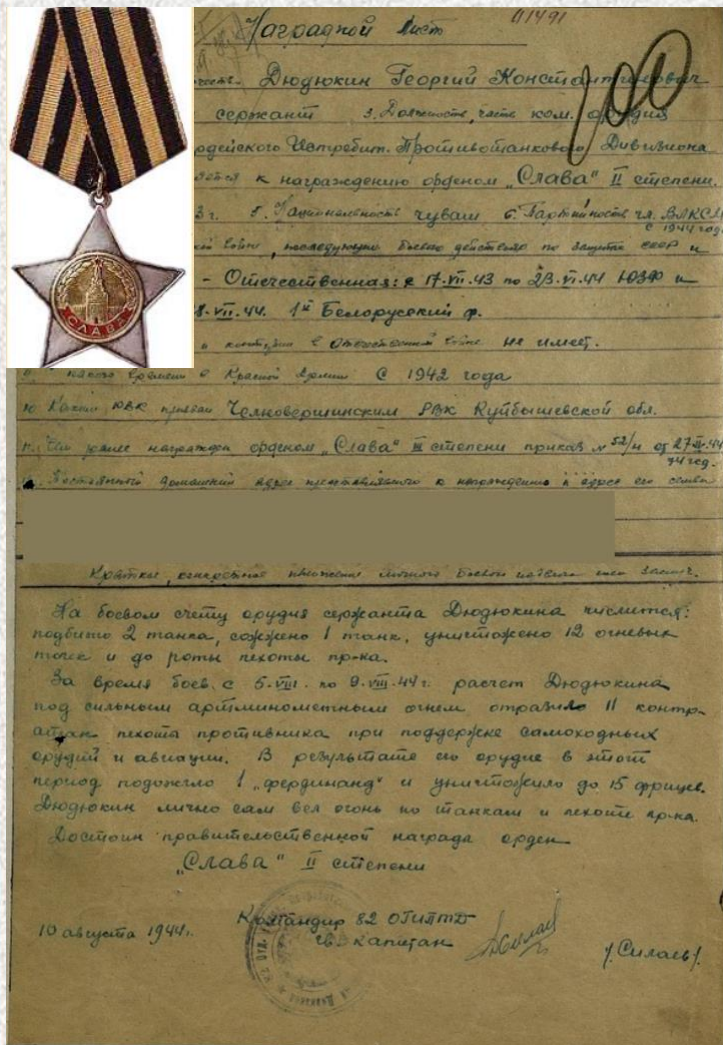 Наградной Лист
01491
Дюдюкин Георгий Константинович
сержант 3. Должность, часть ком. орудия
Истребит. Противотанкового Дивизиона
к награждению орденом „Слава" II степени.
3 г. 5. Национальность чуваш 6. Партийность чл. ВЛКСМ
с 1944 года
последующих боевых действиях по защите СССР и
- Отечественная: с 17.VII.43 по 23.VI.44 ЮЗФ и
8.VII.44. 1й Белорусский ф.
контузии в Отечественной войне не имеет.
С какого времени в Красной Армии С 1942 года
10 Каким РВК призван Челновершинским РВК Куйбышевской обл.
11. Чем ранее награжден орденом „Слава" III степени приказ №52/н от 27
44 год.
Постоянный домашний адрес представляемого к награждению и адрес его семьи
Краткое, конкретное изложение личного боевого подвига или заслуг.
На боевом счету орудия сержанта Дюдюкина числится:
подбито 2 танка, сожжено 1 танк, уничтожено 12 огневых
точек и до роты пехоты пр-ка.
За время боев с 5.VIII. по 9.VIII.44 г. расчет Дюдюкина
под сильным артминометным огнем отразило 11 контр-
атак пехота противника при поддержке самоходных
орудий и авиации. В результате его орудие в этот
период подожгло 1 „фердинанд" и уничтожило до 15 фрицев.
Дюдюкин лично сам вел огонь по танкам и пехоте пр-ка.
Достоин правительственной награда орден
„Слава" II степени
10 августа 1944г.
Командир 82 ОГИПТД
гв. Капитан
/Силаев/.
СЛАВА